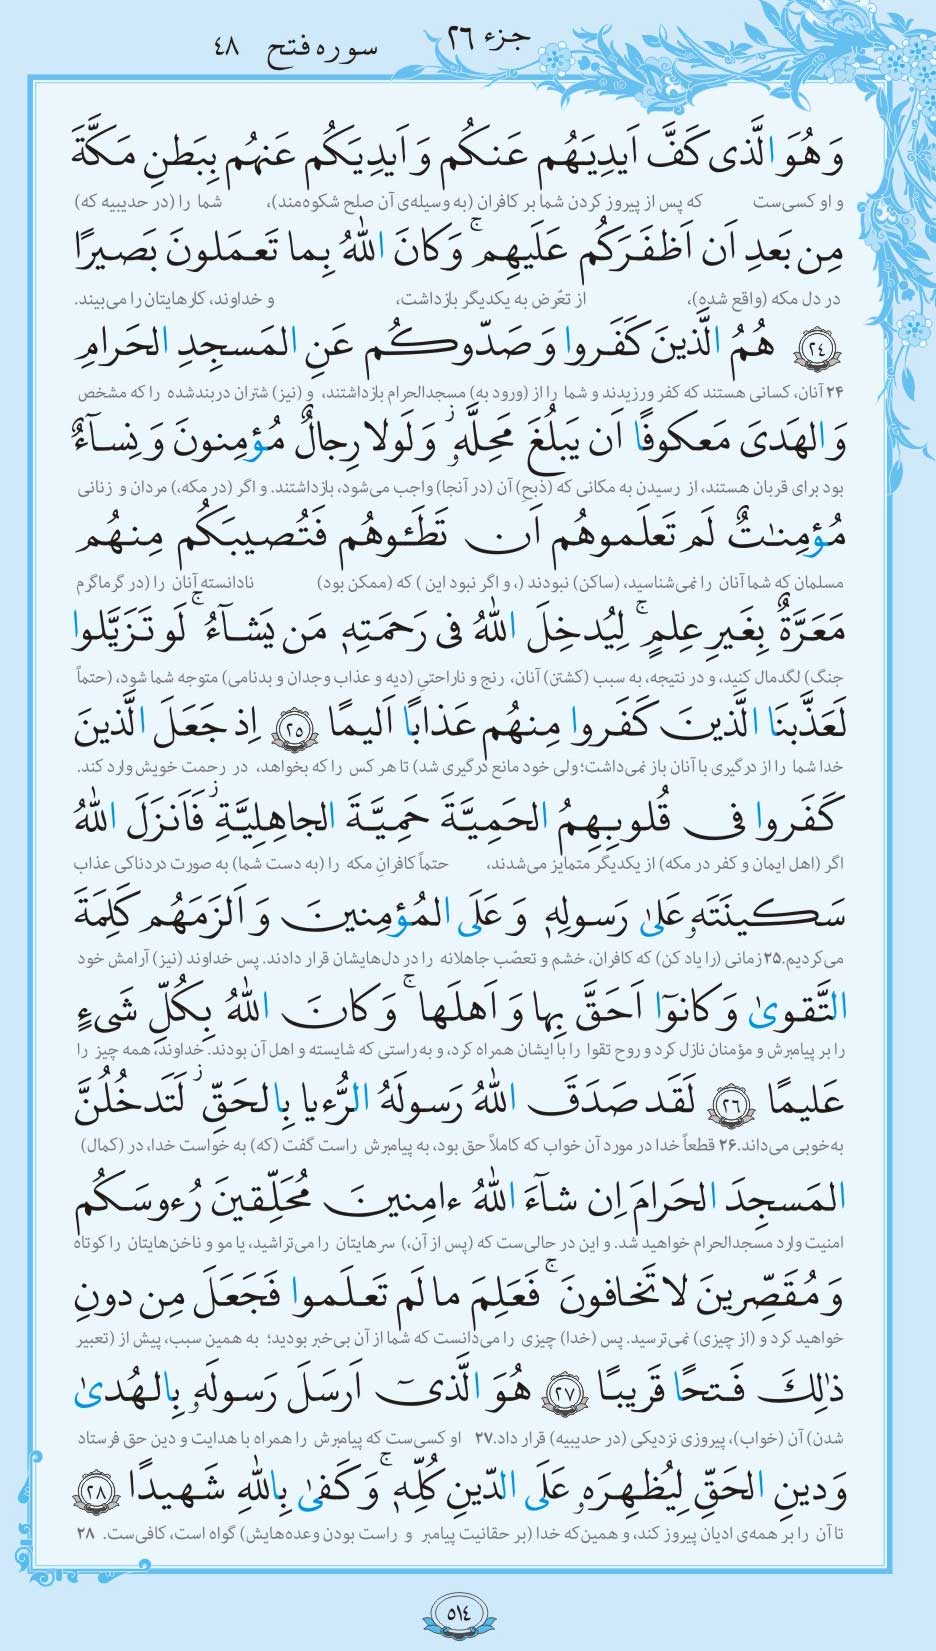 جزء ۲۶
سوره فتح ۴۸
وَ هُوَ الَّذی کَفَّ اَیدِیَهُم عَنکُم وَ اَیدِیَکُم عَنهُم بِبَطنِ مَکَّةَ
و او کسی‌ست که پس از پیروز کردن شما بر کافران (به وسیله‌ی آن صلح شکوه‌مند)، شما را (در حدیبیه که)
مِن بَعدِ اَن اَظفَرَکُم عَلَیهِم ۚ وَ کانَ اللهُ بِما تَعمَلونَ بَصیرًا
در دل مکه (واقع شده)، از تعّرض به یکدیگر بازداشت، و خداوند، کارهایتان را می‌بیند.
﴿۲۴﴾ هُمُ الَّذینَ کَفَروا وَ صَدّوکُم عَنِ المَسجِدِ الحَرامِ
۲۴ آنان، کسانی هستند که کفر ورزیدند و شما را از (ورود به) مسجدالحرام بازداشتند، و (نیز) شتران دربندشده را که مشخص
وَ الهَدیَ مَعکوفًا اَن یَبلُغَ مَحِلَّهٗ ز وَ لَولا رِجالٌ مُؤمِنونَ وَ نِسآءٌ
بود برای قربان هستند، از رسیدن به مکانی که (ذبحِ) آن (در آنجا) واجب می‌شود، بازداشتند. و اگر (در مکه،) مردان و زنانی
مُؤمِنٰتٌ لَم تَعلَموهُم اَن تَطَـٔوهُم فَتُصیبَکُم مِنهُم
مسلمان که شما آنان را نمی‌شناسید، (ساکن) نبودند (، و اگر نبود این ) که (ممکن بود) نادانسته آنان را (در گرماگرم
مَعَرَّةٌ بِغَیرِ عِلمٍ ۚ لِیُدخِلَ اللهُ فی رَحمَتِهٖ مَن یَشآءُ ۚ لَو تَزَیَّلوا
جنگ) لگدمال کنید، و در نتیجه، به سبب (کشتن) آنان، رنج و ناراحتیِ (دیه و عذاب وجدان و بدنامی) متوجه شما شود، (حتماً
لَعَذَّبنَا الَّذینَ کَفَروا مِنهُم عَذابًا اَلیمًا ﴿۲۵﴾ اِذ جَعَلَ الَّذینَ
خدا شما را از درگیری با آنان باز نمی‌داشت؛ ولی خود مانع درگیری شد) تا هر کس را که بخواهد، در رحمت خویش وارد کند.
کَفَروا فی قُلوبِهِمُ الحَمِیَّةَ حَمِیَّةَ الجاهِلِیَّةِ ز فَاَنزَلَ اللهُ
اگر (اهل ایمان و کفر در مکه) از یکدیگر متمایز می‌شدند، حتماً کافرانِ مکه را (به دست شما) به صورت دردناکی عذاب
سَکینَتَهٗ عَلیٰ رَسولِهٖ وَ عَلَی المُؤمِنینَ وَ اَلزَمَهُم کَلِمَةَ
می‌کردیم.۲۵ زمانی (را یاد کن) که کافران، خشم و تعصّب جاهلانه را در دل‌هایشان قرار دادند. پس خداوند (نیز) آرامش خود
التَّقویٰ وَ کانوٓا اَحَقَّ بِها وَ اَهلَها ۚ وَ کانَ اللهُ بِکُلِّ شَیءٍ
را بر پیامبرش و مؤمنان نازل کرد و روح تقوا را با ایشان همراه کرد، و به راستی که شایسته و اهل آن بودند. خداوند، همه چیز را
عَلیمًا ﴿۲۶﴾ لَقَد صَدَقَ اللهُ رَسولَهُ الرُّءیا بِالحَقِّ ز لَتَدخُلُنَّ
به‌خوبی می‌داند.۲۶ قطعاً خدا در مورد آن خواب که کاملاً حق بود، به پیامبرش راست گفت (که) به خواست خدا، در (کمال)
المَسجِدَ الحَرامَ اِن شآءَ اللهُ ءامِنینَ مُحَلِّقینَ رُءوسَکُم
امنیت وارد مسجدالحرام خواهید شد. و این در حالی‌ست که (پس از آن،) سرهایتان را می‌تراشید، یا مو و ناخن‌هایتان را کوتاه
وَ مُقَصِّرینَ لا تَخافونَ ۚ فَعَلِمَ ما لَم تَعلَموا فَجَعَلَ مِن دونِ
خواهید کرد و (از چیزی) نمی‌ترسید. پس (خدا) چیزی را می‌دانست که شما از آن بی‌خبر بودید؛ به همین سبب، پیش از (تعبیر
ذٰلِکَ فَتحًا قَریبًا ﴿۲۷﴾ هُوَ الَّذیٓ اَرسَلَ رَسولَهٗ بِالهُدیٰ
شدن) آن (خواب)، پیروزی نزدیکی (در حدیبیه) قرار داد.۲۷ او کسی‌ست که پیامبرش را همراه با هدایت و دین حق فرستاد
وَ دینِ الحَقِّ لِیُظهِرَهٗ عَلَی الدّینِ کُلِّهٖ ۚ وَ کَفیٰ بِاللهِ شَهیدًا ﴿۲۸﴾
تا آن را بر همه‌ی ادیان پیروز کند، و همین‌که خدا (بر حقانیت پیامبر و راست بودن وعده‌هایش) گواه است، کافی‌ست. ۲۸
۵۱۴